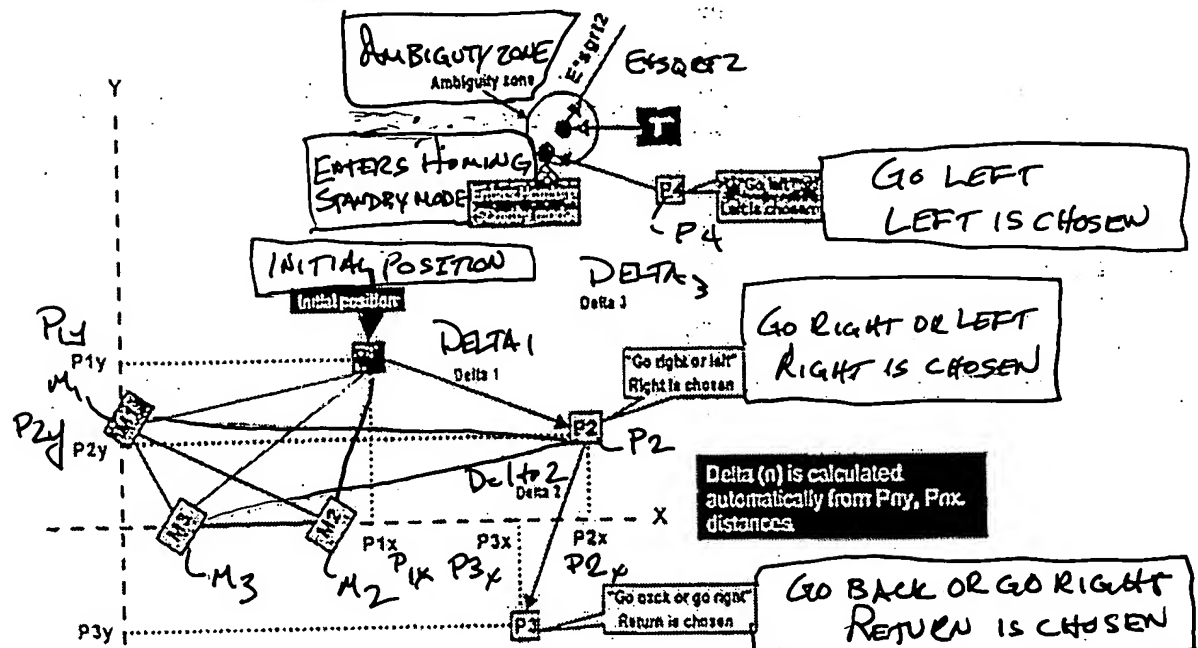 AMBIGUTY ZONE
Ambiguity zone
E*sqrt2
E*SQRT2
Y
T
ENTERS HOMING
STANDBY MODE
P4
"Go left"
Left is chosen
P4
GO LEFT
LEFT IS CHOSEN
INITIAL POSITION
Initial position
DELTA 3
Delta 3
P1y
P1y
DELTA 1
Delta 1
"Go right or left"
Right is chosen
GO RIGHT OR LEFT
RIGHT IS CHOSEN
M1
M1
P2y
P2y
P2
P2
Delta 2
Delta 2
Delta (n) is calculated
automatically from Pny, Pnx
distances
M3
M2
X
P1x
P1x
P3x
P3x
P2x
P2x
M3
M2
P3y
P3
"Go back or go right"
Return is chosen
GO BACK OR GO RIGHT
RETURN IS CHOSEN